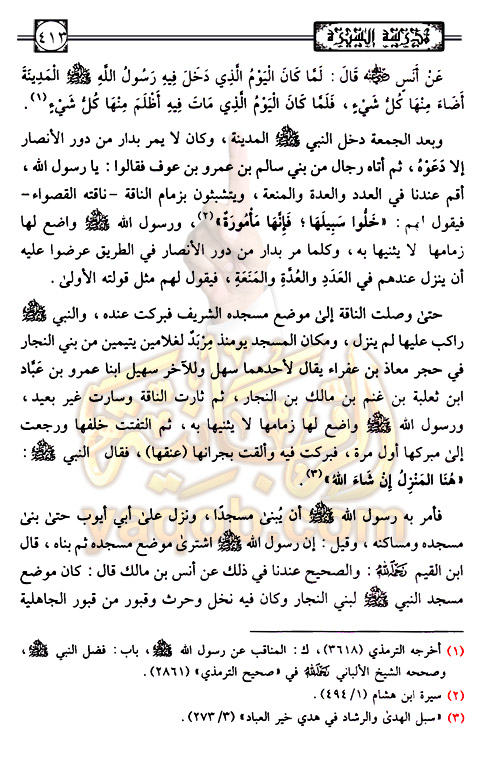 مدرسة السيرة
٤١٣
عَنْ أَنَسٍ ﷺ قَالَ : لَمَّا كَانَ الْيَوْمُ الَّذِي دَخَلَ فِيهِ رَسُولُ اللَّهِ ﷺ الْمَدِينَةَ
أَضَاءَ مِنْهَا كُلُّ شَيْءٍ ، فَلَمَّا كَانَ الْيَوْمُ الَّذِي مَاتَ فِيهِ أَظْلَمَ مِنْهَا كُلُّ شَيْءٍ(١) .
وبعد الجمعة دخل النبي ﷺ المدينة ، وكان لا يمر بدار من دور الأنصار
إلا دَعَوْهُ ، ثم أتاه رجال من بني سالم بن عمرو بن عوف فقالوا : يا رسول الله ،
أقم عندنا في العدد والعدة والمنعة ، ويتشبثون بزمام الناقة -ناقته القصواء-
فيقول لهم : «خَلُّوا سَبِيلَهَا ؛ فَإِنَّهَا مَأْمُورَةٌ»(٢)، ورسول الله ﷺ واضع لها
زمامها لا يثنيها به ، وكلما مر بدار من دور الأنصار في الطريق عرضوا عليه
أن ينزل عندهم في العَدَدِ والعُدَّةِ والمَنَعَةِ ، فيقول لهم مثل قولته الأولىٰ .
حتىٰ وصلت الناقة إلىٰ موضع مسجده الشريف فبركت عنده ، والنبي ﷺ
راكب عليها لم ينزل ، ومكان المسجد يومئذ مِرْبَدٌ لغلامين يتيمين من بني النجار
في حجر معاذ بن عفراء يقال لأحدهما سهل وللآخر سهيل ابنا عمرو بن عَبَّاد
ابن ثعلبة بن غنم بن مالك بن النجار ، ثم ثارت الناقة وسارت غير بعيد ،
ورسول الله ﷺ واضع لها زمامها لا يثنيها به ، ثم التفتت خلفها ورجعت
إلىٰ مبركها أول مرة ، فبركت فيه وألقت بجرانها (عنقها) ، فقال النبي ﷺ :
«هُنَا المَنْزِلُ إِنْ شَاءَ اللهُ»(٣) .
فأمر به رسول الله ﷺ أن يُبنىٰ مسجدًا ، ونزل علىٰ أبي أيوب حتىٰ بنىٰ
مسجده ومساكنه ، وقيل : إن رسول الله ﷺ اشترىٰ موضع مسجده ثم بناه ، قال
ابن القيم رحمه الله : والصحيح عندنا في ذلك عن أنس بن مالك قال : كان موضع
مسجد النبي ﷺ لبني النجار وكان فيه نخل وحرث وقبور من قبور الجاهلية
(١) أخرجه الترمذي (٣٦١٨) ، ك : المناقب عن رسول الله ﷺ، باب : فضل النبي ﷺ ،
وصححه الشيخ الألباني رحمه الله في «صحيح الترمذي» (٢٨٦١) .
(٢) سيرة ابن هشام (١/ ٤٩٤) .
(٣) «سبل الهدىٰ والرشاد في هدي خير العباد» (٣/ ٢٧٣) .
yaqob.com